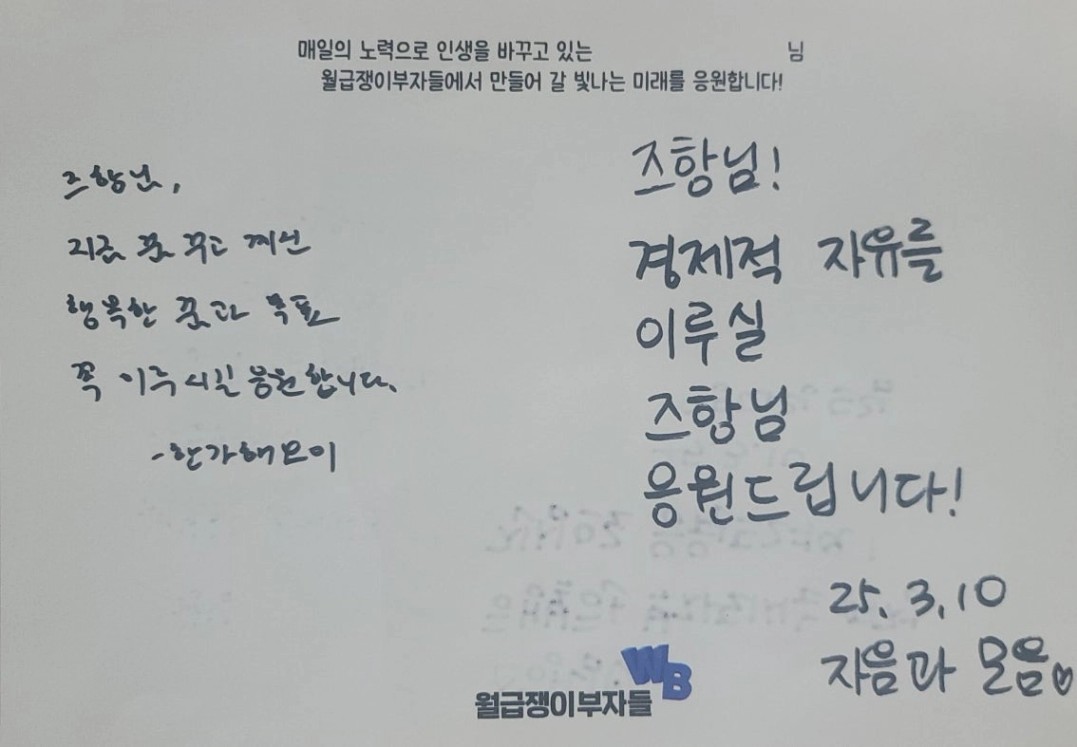 매일의 노력으로 인생을 바꾸고 있는 님
월급쟁이부자들에서 만들어 갈 빛나는 미래를 응원합니다!
즈항님,
지금 꿈 꾸고 계신
행복한 꿈과 목표
꼭 이루시길 응원합니다.
-한가해보이
즈항님!
경제적 자유를
이루실
즈항님
응원드립니다!
25. 3. 10
자음과 모음♡
WB
월급쟁이부자들